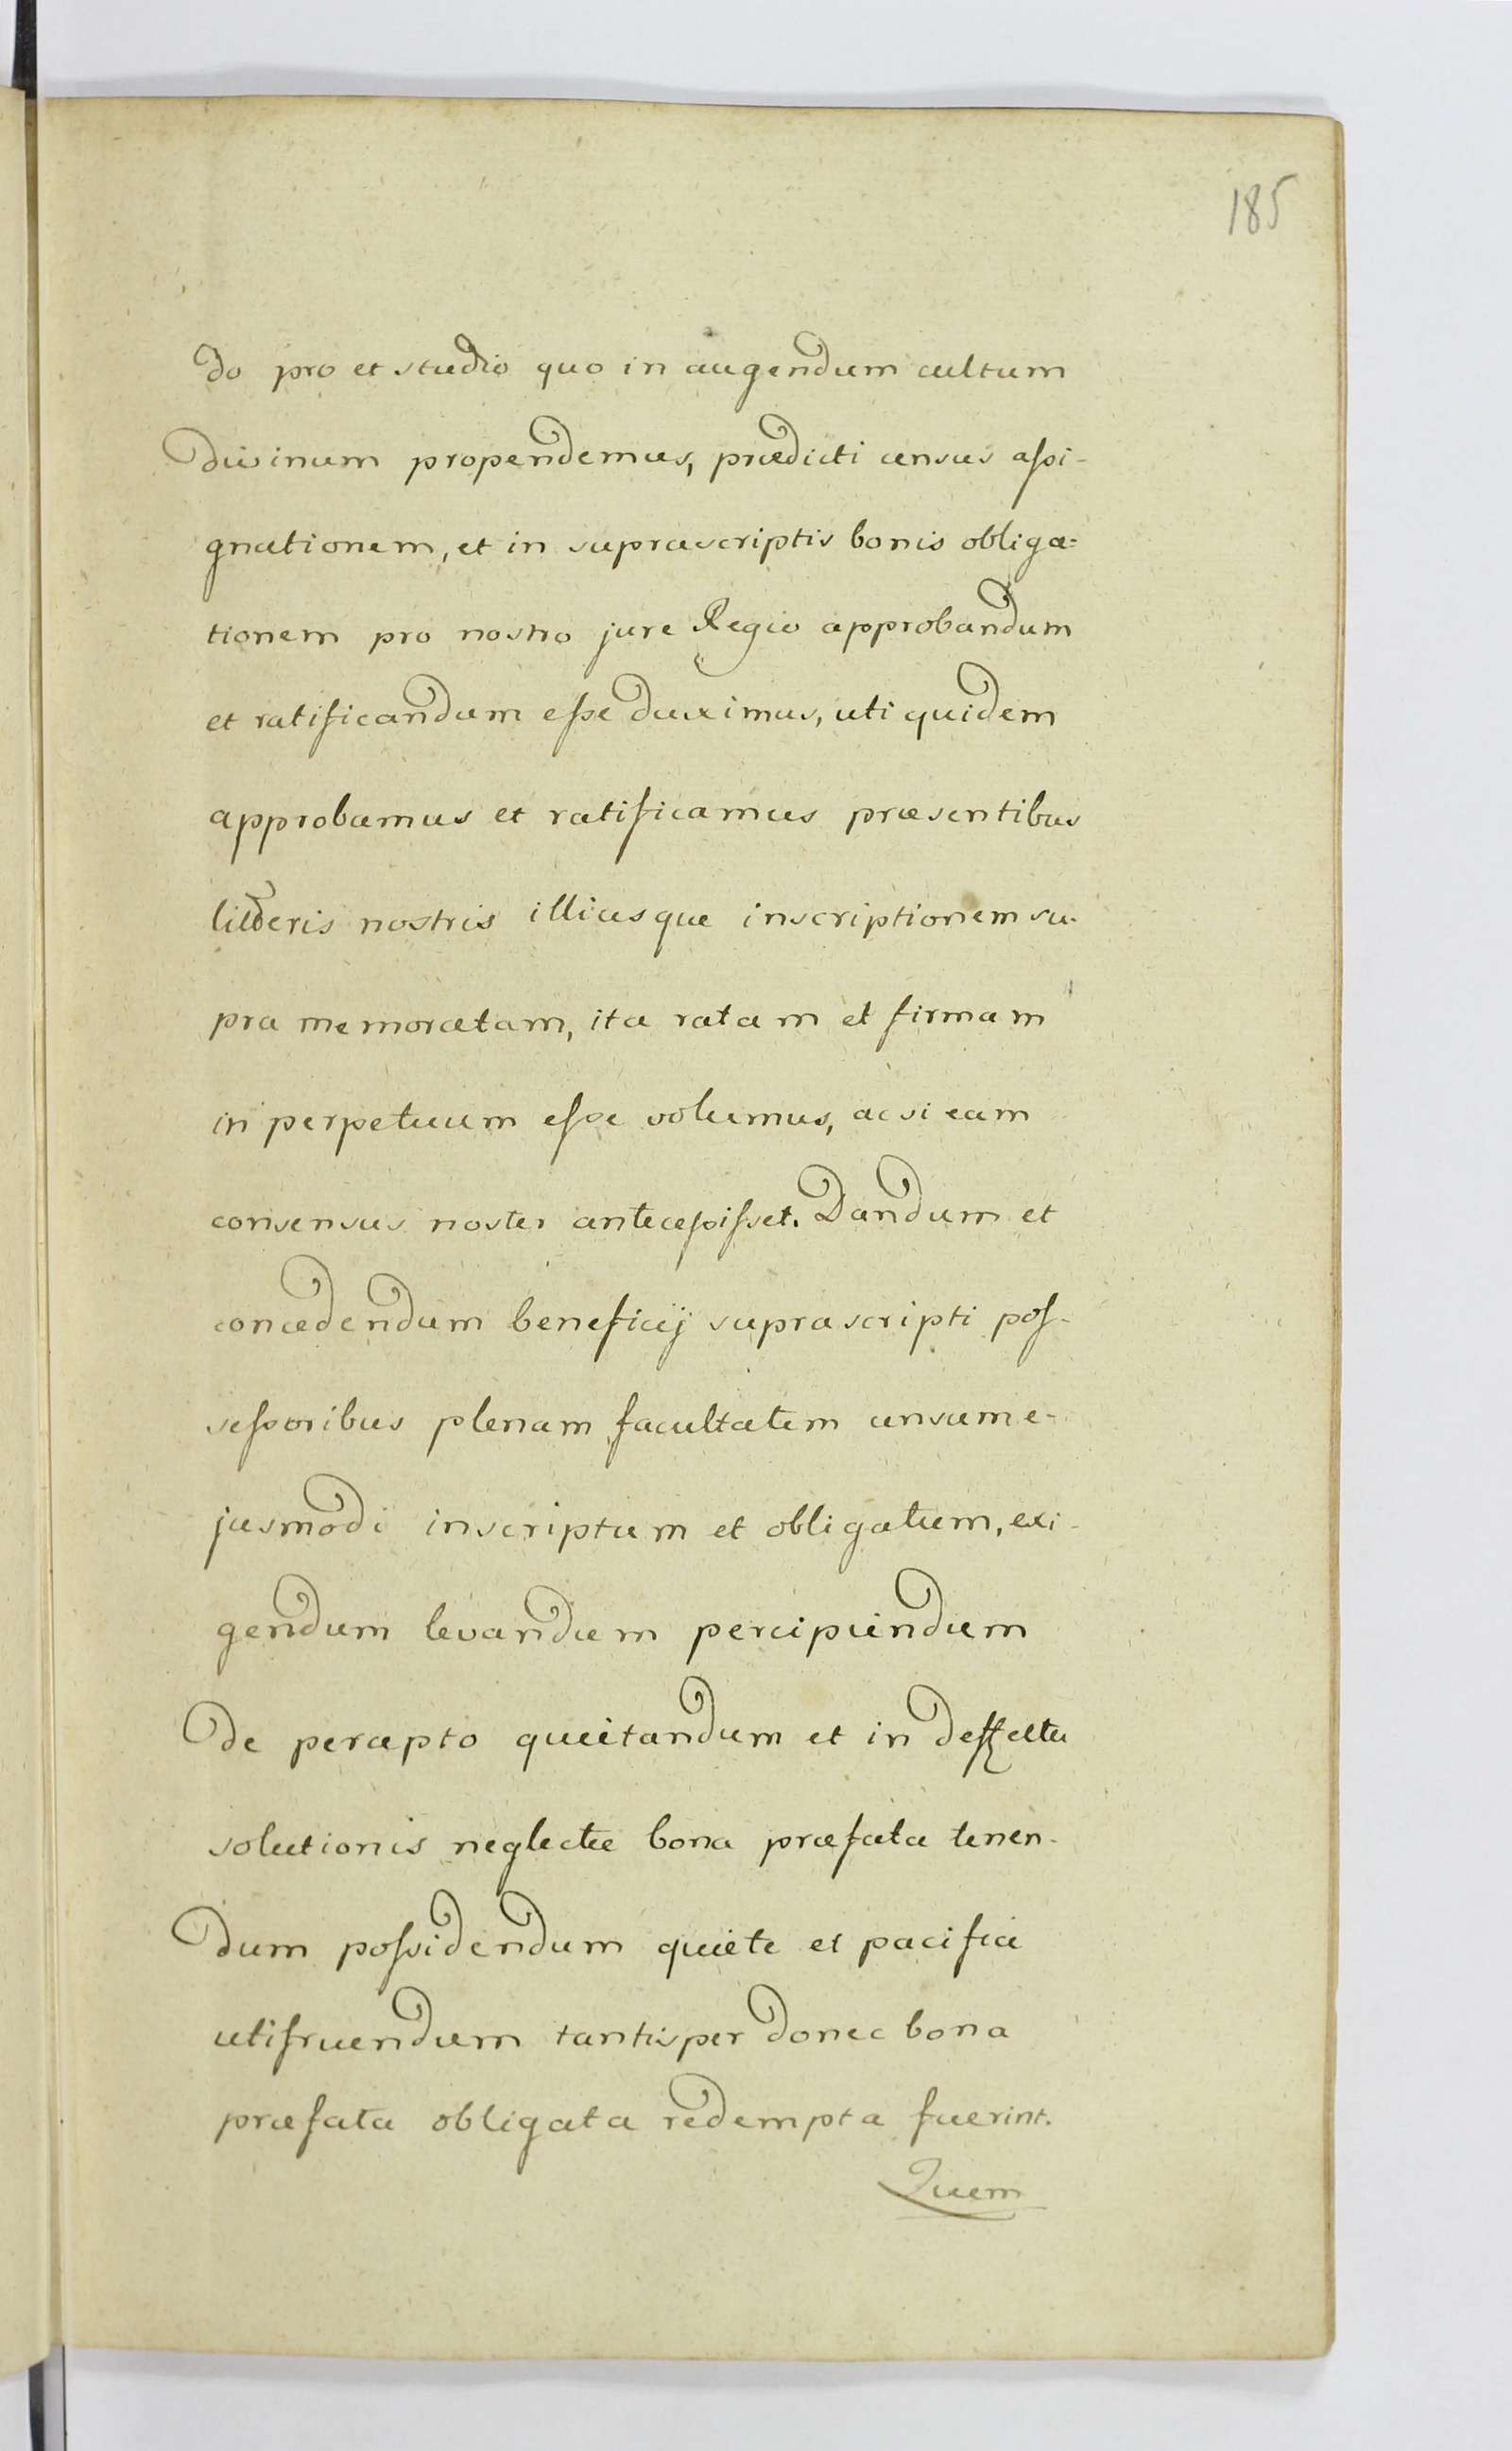 185
do pro et studio quo in augendum cultum
divinum propendemus, prædicti census aſsi-
gnationem, et in suprascriptis bonis obliga=
tionem pro nostro jure Regio approbandum
et ratificandum eſse duximus, uti quidem
approbamus et ratificamus præsentibus
litteris nostris illiusque inscriptionem su-
pra memoratam, ita ratam et firmam
in perpetuum eſse volumus, ac si eam
consensus noster anteceſsiſset. Dandum et
concedendum beneficij suprascripti poſ-
seſsoribus plenam facultatem censum e-
jusmodi inscriptum et obligatum, exi-
gendum levandum percipiendum
de percepto quietandum et in deffectu
solutionis neglectæ bona præfata tenen-
dum poſsidendum quiete et pacifice
utifruendum tantisper donec bona
præfata obligata redempta fuerint.
Quem